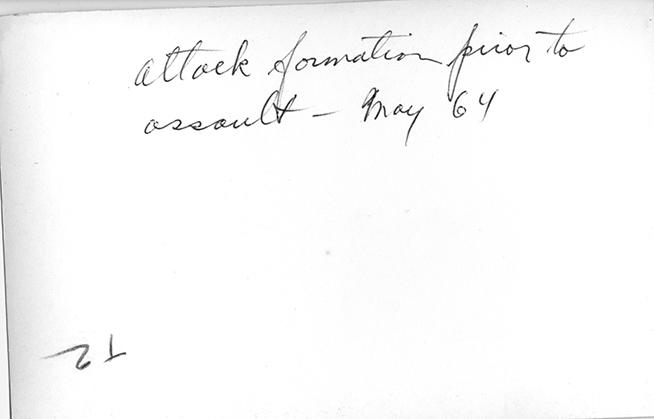 attack formation prior to
assault - May 64
12